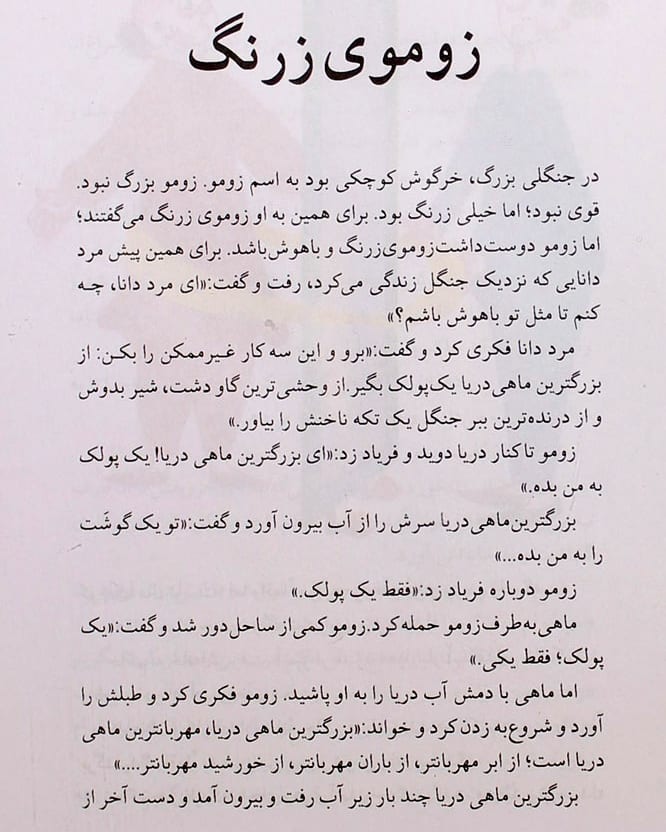 زوموی زرنگ
در جنگلی بزرگ، خرگوش کوچکی بود به اسم زومو. زومو بزرگ نبود.
قوی نبود؛ اما خیلی زرنگ بود. برای همین به او زوموی زرنگ می‌گفتند؛
اما زومو دوست‌داشت زوموی‌زرنگ و باهوش‌باشد. برای همین پیش مرد
دانایی که نزدیک جنگل زندگی می‌کرد، رفت و گفت:«ای مرد دانا، چه
کنم تا مثل تو باهوش باشم؟»
مرد دانا فکری کرد و گفت:«برو و این سه کار غیرممکن را بکن: از
بزرگترین ماهی‌دریا یک‌پولک بگیر.از وحشی‌ترین گاو دشت، شیر بدوش
و از درنده‌ترین ببر جنگل یک تکه ناخنش را بیاور.»
زومو تا کنار دریا دوید و فریاد زد:«ای بزرگترین ماهی دریا! یک پولک
به من بده.»
بزرگترین‌ماهی‌دریا سرش را از آب بیرون آورد و گفت:«تو یک گوشَت
را به من بده...»
زومو دوباره فریاد زد:«فقط یک پولک.»
ماهی‌به‌طرف‌زومو حمله‌کرد.زومو کمی‌از ساحل‌دور شد و گفت:«یک
پولک؛ فقط یکی.»
اما ماهی با دمش آب دریا را به او پاشید. زومو فکری کرد و طبلش را
آورد و شروع‌به زدن کرد و خواند:«بزرگترین ماهی دریا، مهربانترین ماهی
دریا است؛ از ابر مهربانتر، از باران مهربانتر، از خورشید مهربانتر....»
بزرگترین ماهی دریا چند بار زیر آب رفت و بیرون آمد و دست آخر از